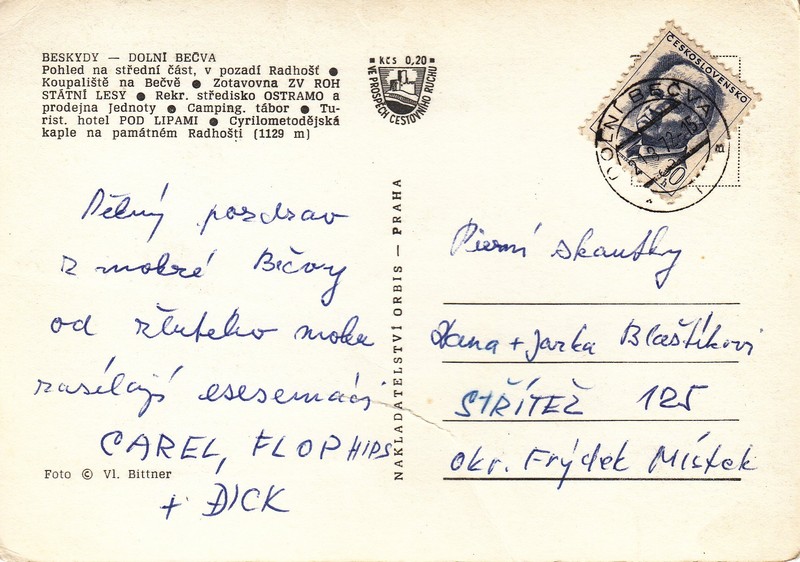 BESKYDY — DOLNÍ BEČVA
Pohled na střední část, v pozadí Radhošť ●
Koupaliště na Bečvě ● Zotavovna ZV ROH
STÁTNÍ LESY ● Rekr. středisko OSTRAMO a
prodejna Jednoty ● Camping. tábor ● Tu-
rist. hotel POD LIPAMI ● Cyrilometodějská
kaple na památném Radhošti (1129 m)
Kčs 0,20
VE PROSPĚCH CESTOVNÍHO RUCHU
ČESKOSLOVENSKO
30 h
DOLNÍ BEČVA
pozdrav
z mokré Bečvy
od žlutého moka
zasílají esesemáci
CAREL, FLOP HIPS
+ DICK
Foto © Vl. Bittner
NAKLADATELSTVÍ ORBIS — PRAHA
skautky
Hana + Jarka Blaštíkovi
STŘÍTEŽ 125
okr. Frýdek Místek